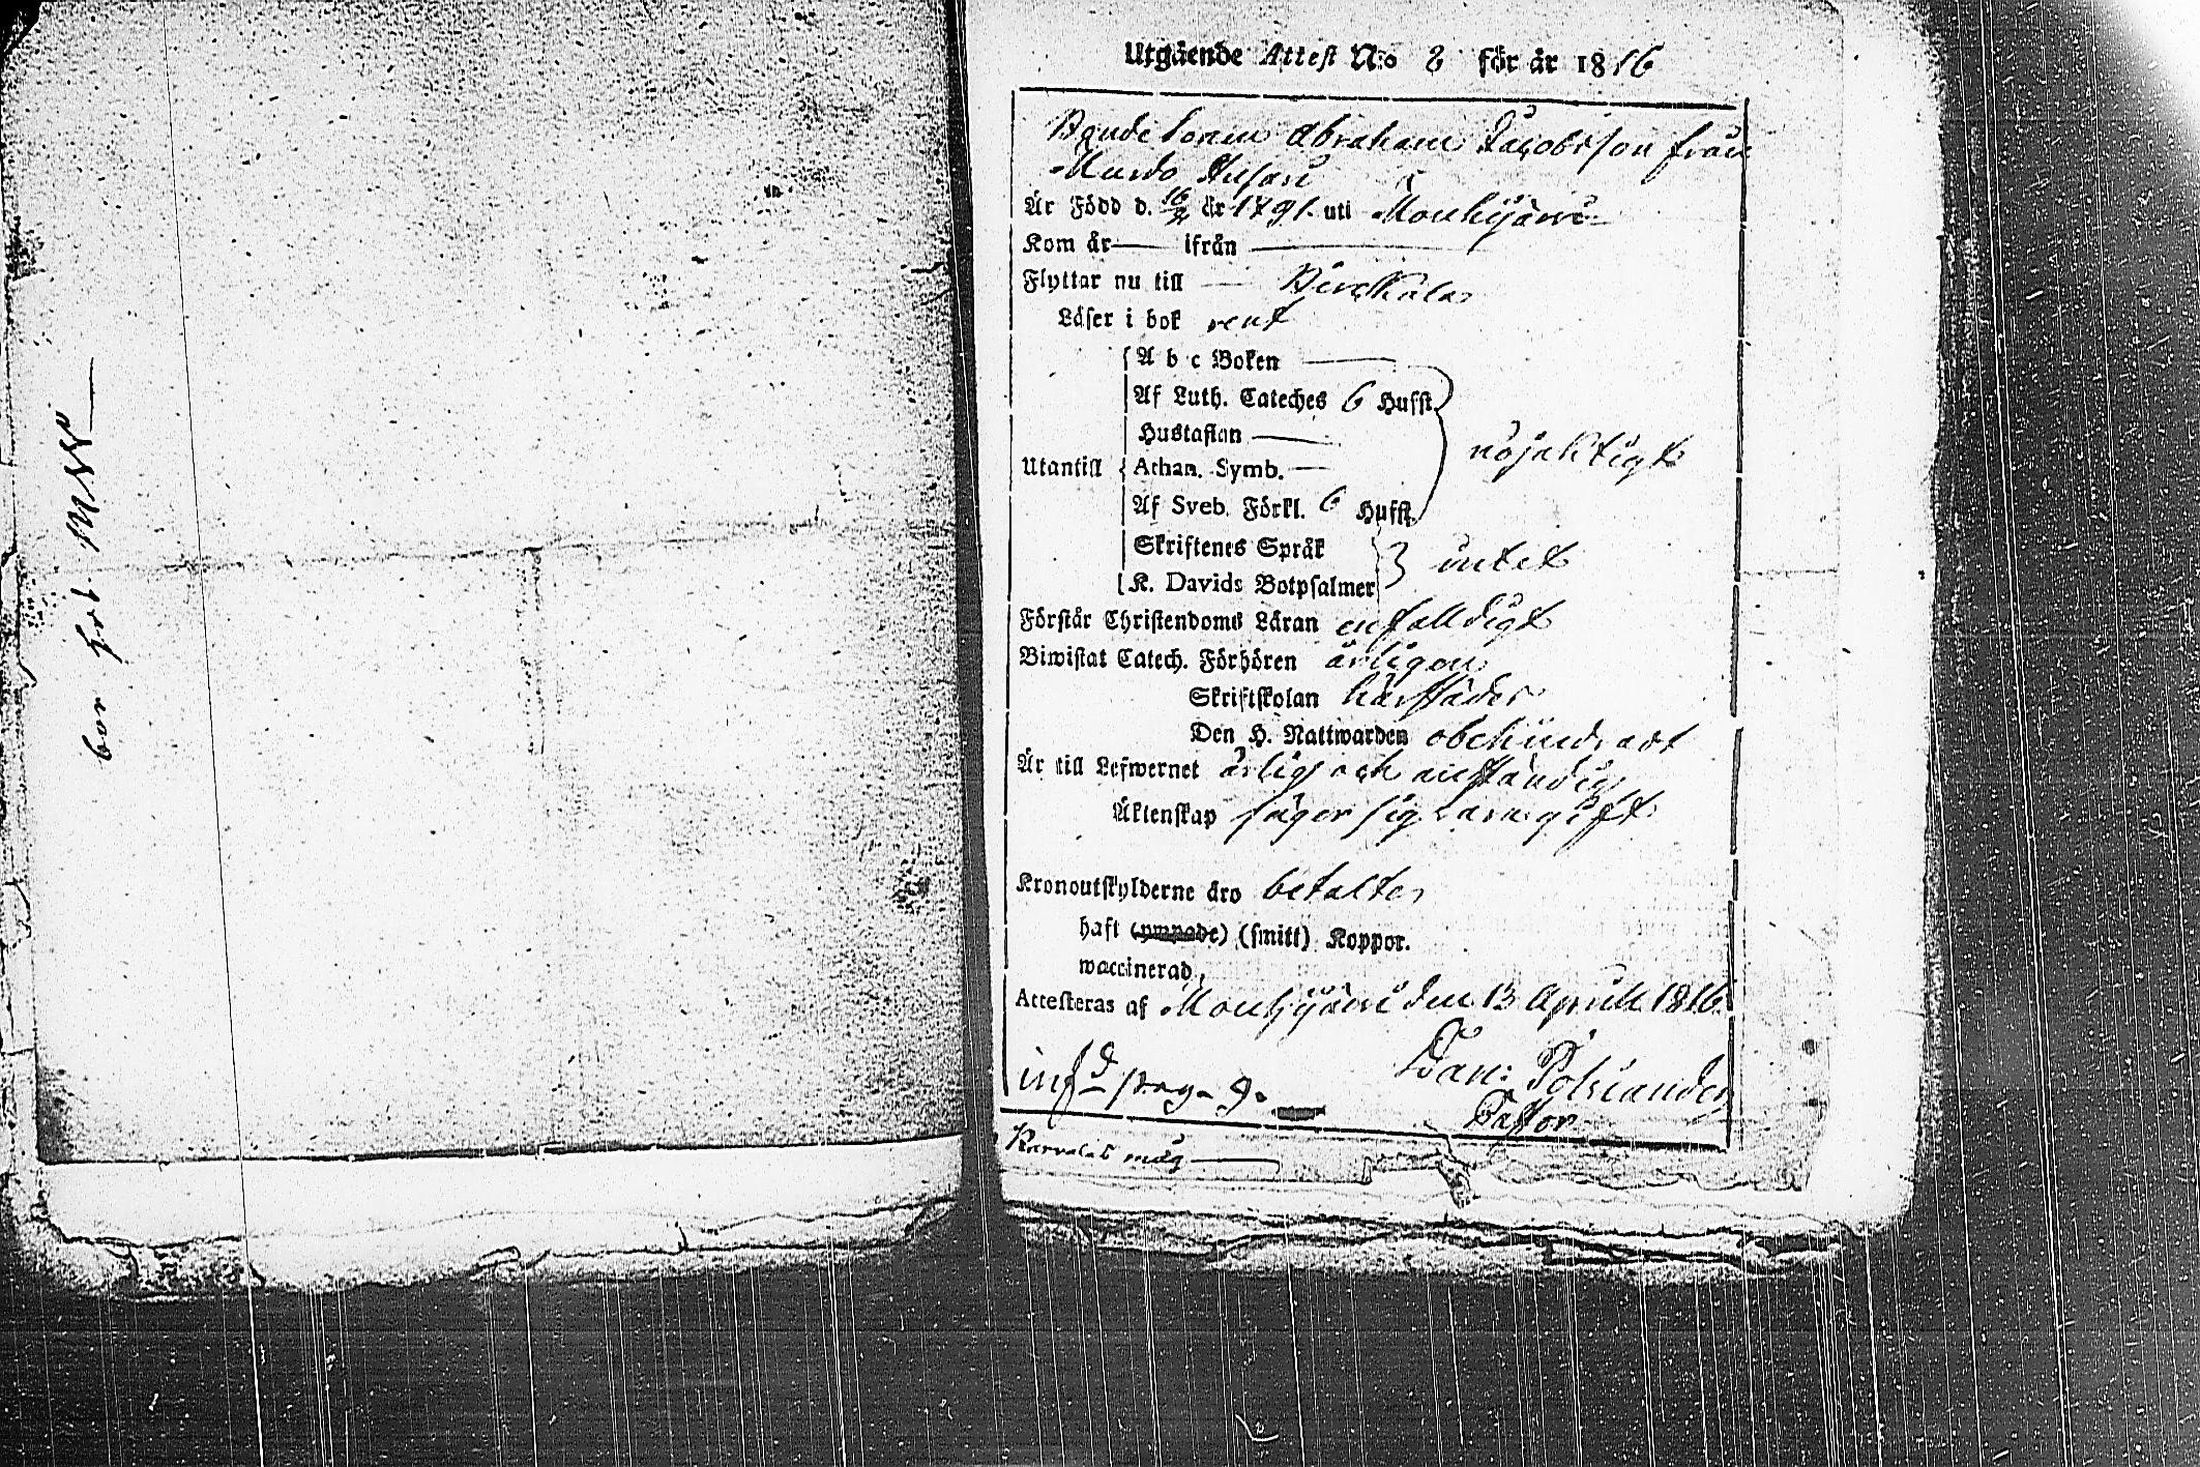 bor hel
Utgående Attest No 8 för år 1816
Bonde Sonen Abraham Jacobsson från
Murdo Husari
Är Född d. 16/2 år 1791. uti Mouhijärvi
Kom år — ifrån —
Flyttar nu till — Birckala
Läser i bok rent
A b c Boken —
Af Luth. Cateches 6 Hufst.
Hustaflan —
nöjaktigt
Utantill Athan. Symb. —
Af Sveb. Förkl. 6 Hufst.
Skriftenes Språk
intet
K. Davids Botpsalmer
Förstår Christendoms Läran enfaldigt
Biwistat Catech. Förhören årligen
Skriftskolan härstädes
Den H. Nattwarden obehindradt
Är till Lefwernet ärlig och anständig
Äktenskap säger sig vara gift
Kronoutskylderne äro betalte
haft (ympade) (smitt) Koppor.
waccinerad,
Attesteras af Mouhijärvi den 13 April 1816.
Dan: Polviander
infd pag. 9.
Pastor
Karvalas måg —